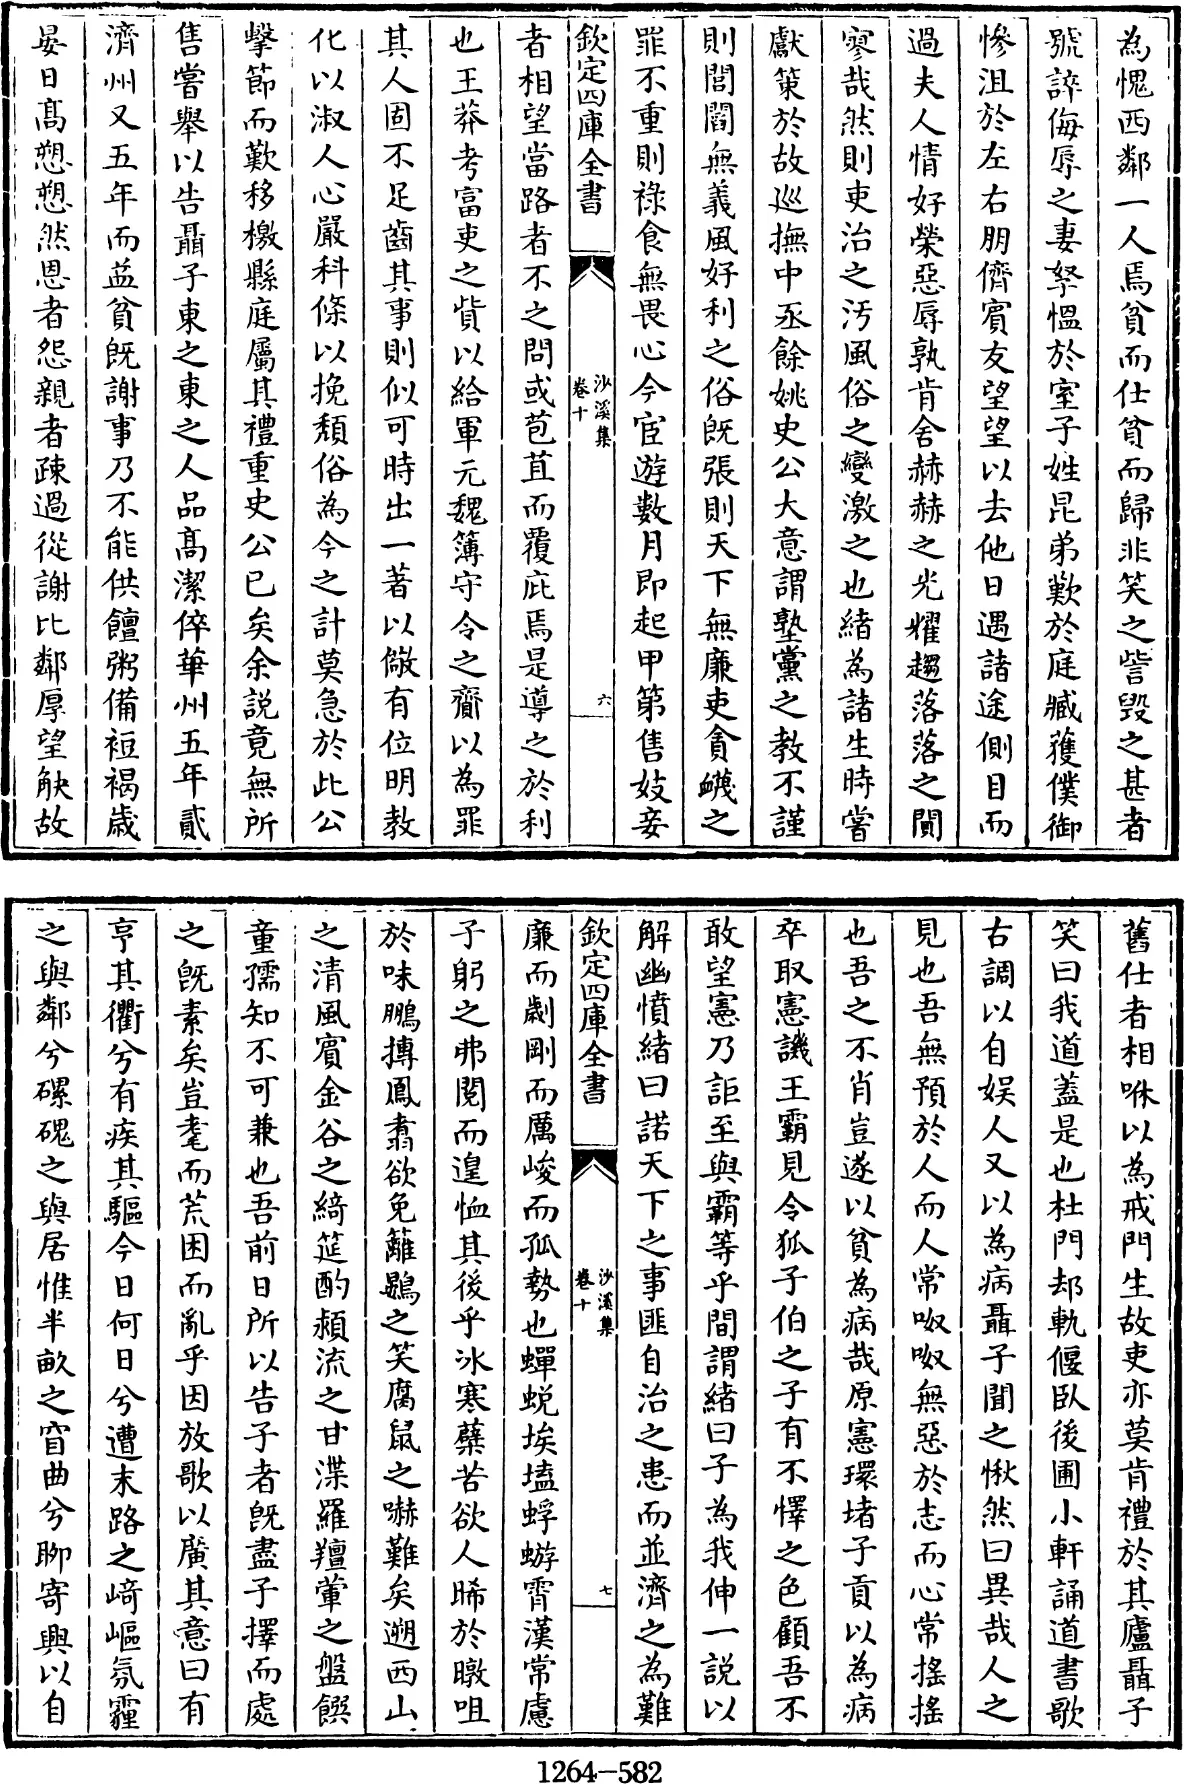 為愧西鄰一人焉貧而仕貧而歸非笑之訾毀之甚者
號誶侮辱之妻孥慍於室子姓昆弟歎於庭臧獲僕御
慘沮於左右朋儕賓友望望以去他日遇諸途側目而
過夫人情好榮惡辱孰肯舍赫赫之光耀趨落落之闃
寥哉然則吏治之汚風俗之變激之也緒為諸生時嘗
獻策於故巡撫中丞餘姚史公大意謂塾黨之教不謹
則閭閻無義風好利之俗既張則天下無廉吏貪衊之
罪不重則祿食無畏心今宦遊數月即起甲第售妓妾
欽定四庫全書
沙溪集
卷十
六
者相望當路者不之問或苞苴而覆庇焉是導之於利
也王莽考富吏之貲以給軍元魏簿守令之齎以為罪
其人固不足齒其事則似可時出一著以儆有位明教
化以淑人心嚴科條以挽頹俗為今之計莫急於此公
擊節而歎移檄縣庭屬其禮重史公已矣余說竟無所
售嘗舉以告聶子東之東之人品高潔倅華州五年貳
濟州又五年而益貧既謝事乃不能供饘粥備裋褐歲
晏日高愬愬然恩者怨親者疎過從謝比鄰厚望觖故
舊仕者相咻以為戒門生故吏亦莫肯禮於其廬聶子
笑曰我道蓋是也杜門却軌偃臥後圃小軒誦道書歌
古調以自娱人又以為病聶子聞之愀然曰異哉人之
見也吾無預於人而人常呶呶無惡於志而心常搖搖
也吾之不肖豈遂以貧為病哉原憲環堵子貢以為病
卒取憲譏王霸見令狐子伯之子有不懌之色顧吾不
敢望憲乃詎至與霸等乎間謂緒曰子為我伸一說以
解幽憤緒曰諾天下之事匪自治之患而並濟之為難
欽定四庫全書
沙溪集
卷十
七
廉而劌剛而厲峻而孤勢也蟬蛻埃壒蜉蝣霄漢常慮
子躬之弗閱而遑恤其後乎冰寒蘗苦欲人晞於暾咀
於味鵬摶鳳翥欲免蘺鷃之笑腐鼠之嚇難矣遡西山
之清風賓金谷之綺筵酌潁流之甘渫羅羶葷之盤饌
童孺知不可兼也吾前日所以告子者既盡子擇而處
之既素矣豈耄而荒困而亂乎因放歌以廣其意曰有
亨其衢兮有疾其驅今日何日兮遭末路之﨑嶇氛霾
之與鄰兮磥磈之與居惟半畝之窅曲兮聊寄興以自
1264—582